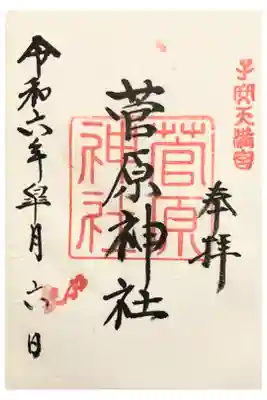 子安天満宮
奉拝
菅原神社
菅原
神社
令和六年皐月六日